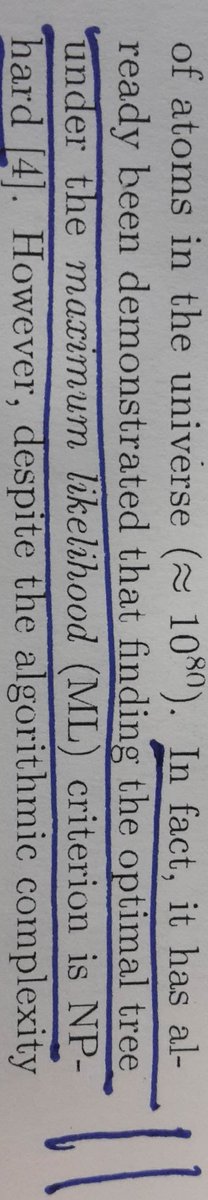 of atoms in the universe (≈ 10⁸⁰). In fact, it has al-
ready been demonstrated that finding the optimal tree
under the maximum likelihood (ML) criterion is NP-
hard [4]. However, despite the algorithmic complexity